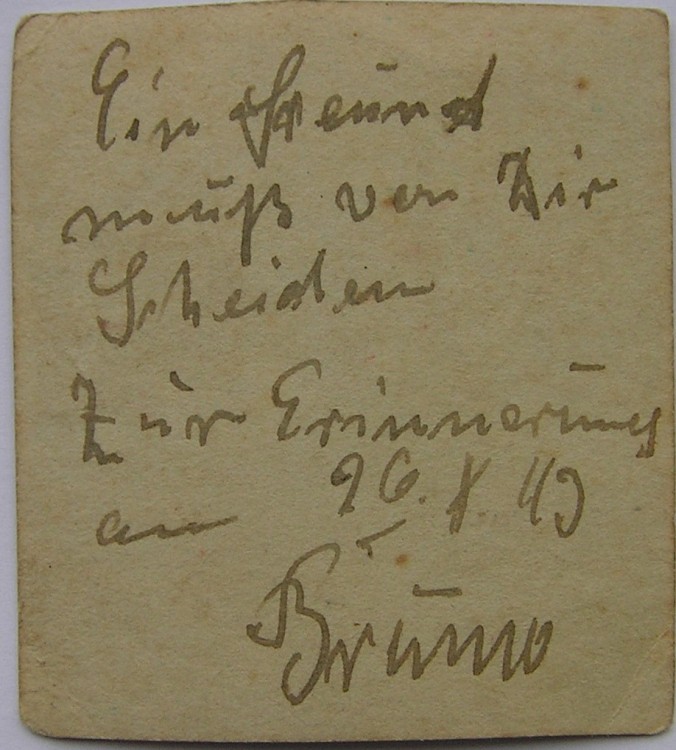 Ein Freund
muß von Dir
Scheiden
Zur Erinnerung
am 26. X. 43
Bruno